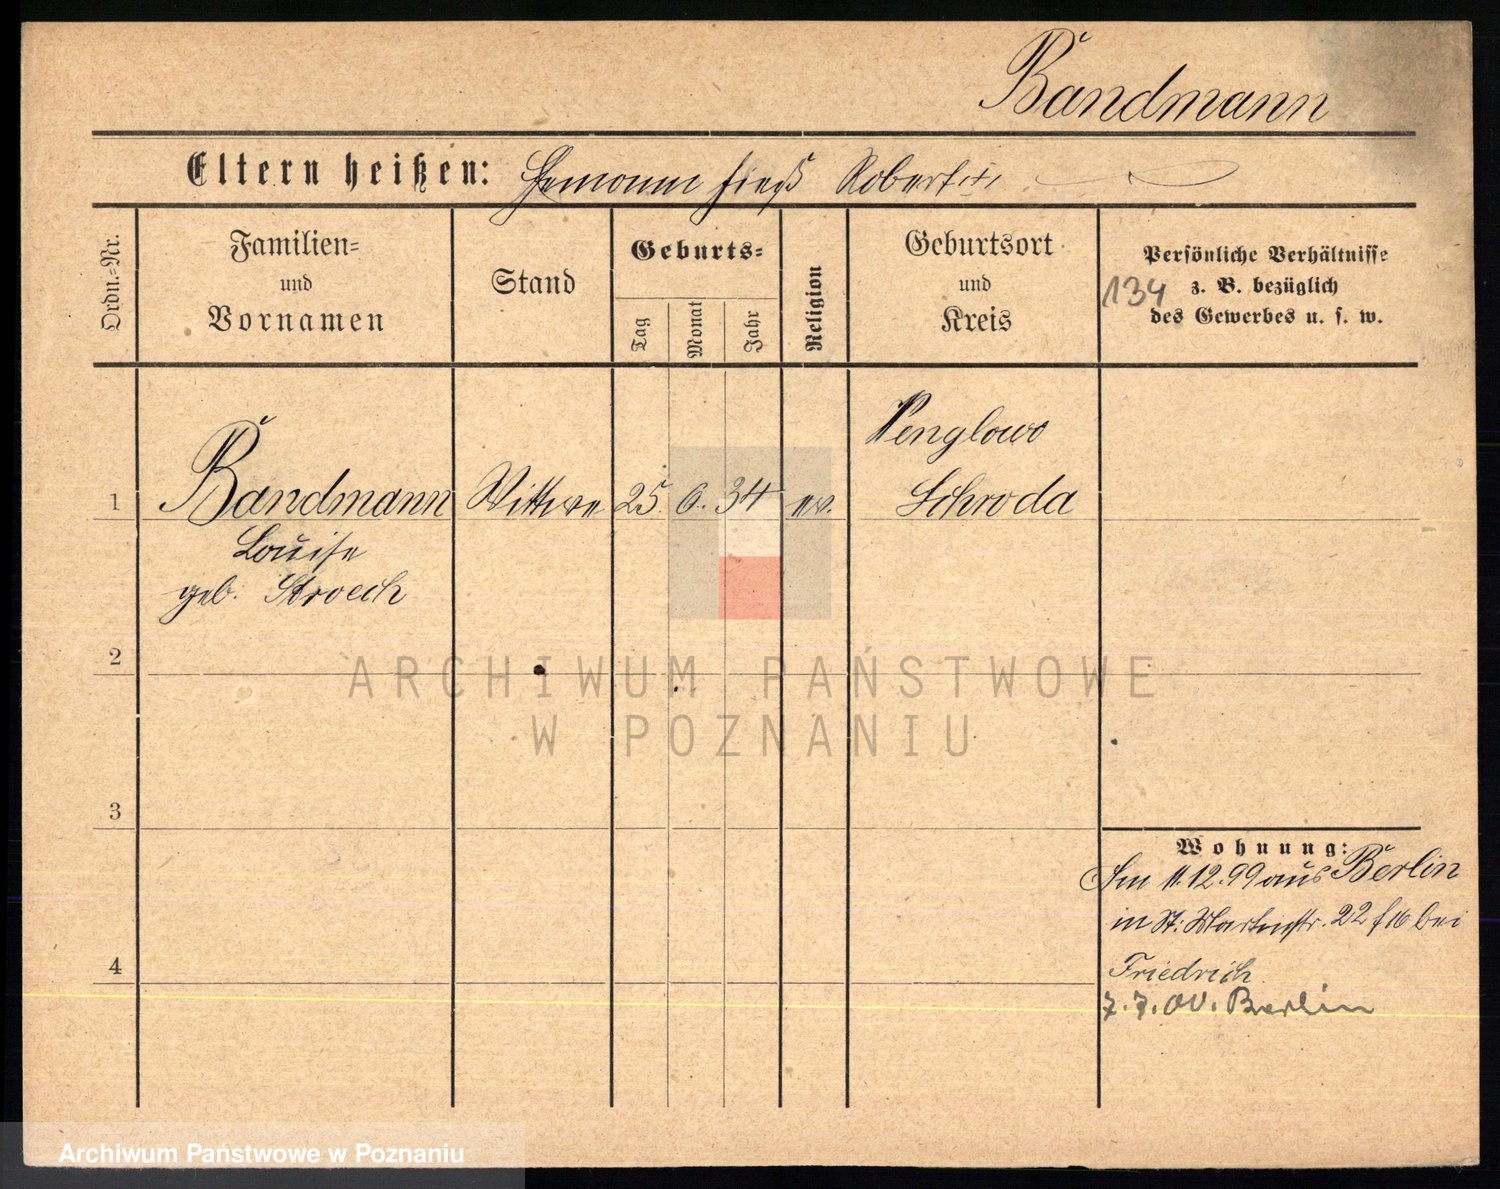 Bandmann
Eltern heißen: Ehemann hieß Robert (+)
Ordn.-Nr.
Familien-
und
Vornamen
Stand
Geburts-
Tag
Monat
Jahr
Religion
Geburtsort
und
Kreis
Persönliche Verhältnisse
z. B. bezüglich
des Gewerbes u. s. w.
134
1
Bandmann
Louise
geb. Stroech
Wittwe
25. 6. 34
ev.
Wenglowo
Schroda
2
3
4
Wohnung:
Am 11.12.99 aus Berlin
in St. Martinstr. 22 bei
Friedrich
7.7.00. Berlin
ARCHIWUM PAŃSTWOWE
W POZNANIU
Archiwum Państwowe w Poznaniu